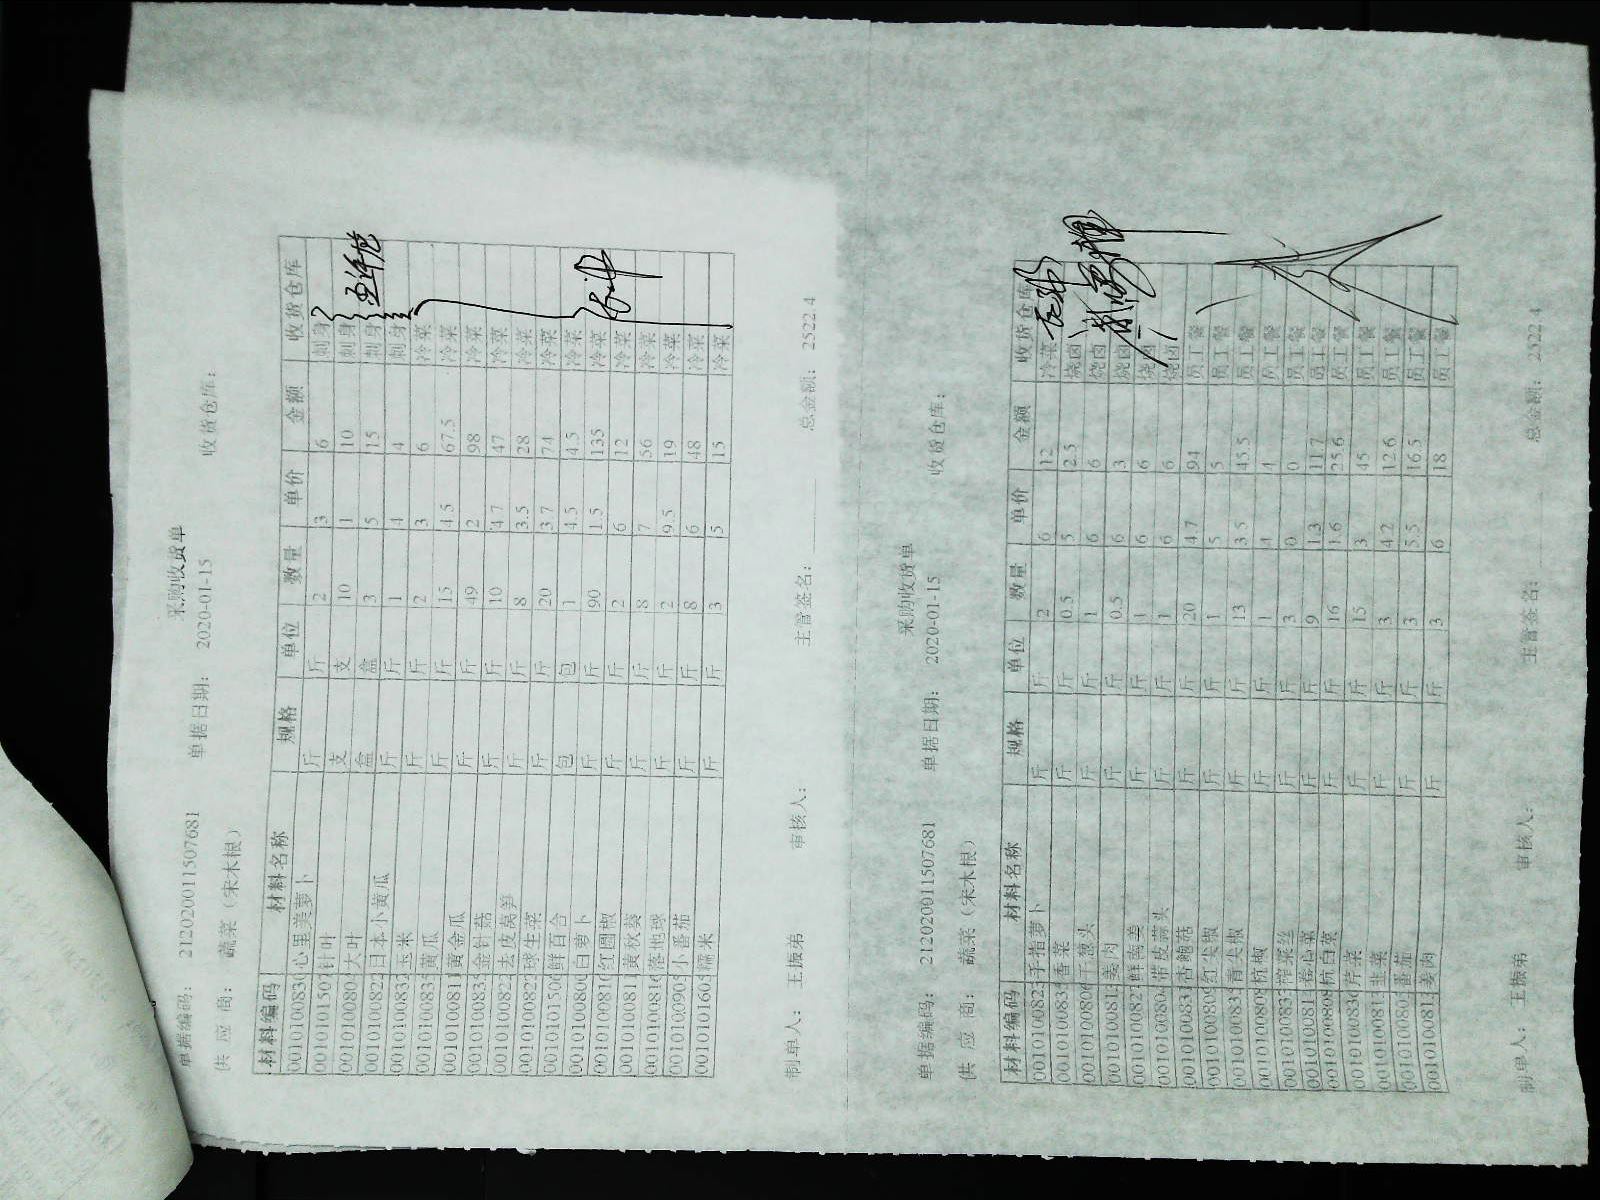 采购收货单
单据编码: 212020011507681 单据日期: 2020-01-15
供 应 商: 蔬菜(宋木根) 收货仓库:
材料编码 材料名称 规格 单位 数量 单价 金额 收货仓库
001010083 心里美萝卜 斤 斤 2 3 6 刺身
001010150 针叶 支 支 10 1 10 刺身
001010080 大叶 盒 盒 3 5 15 刺身
001010082 日本小黄瓜 斤 斤 1 4 4 刺身
001010083 玉米 斤 斤 2 3 6 冷菜
001010083 黄瓜 斤 斤 15 4.5 67.5 冷菜
001010081 黄金瓜 斤 斤 49 2 98 冷菜
001010083 金针菇 斤 斤 10 4.7 47 冷菜
001010082 去皮莴笋 斤 斤 8 3.5 28 冷菜
001010082 球生菜 斤 斤 20 3.7 74 冷菜
001010150 鲜百合 包 包 1 4.5 4.5 冷菜
001010080 白萝卜 斤 斤 90 1.5 135 冷菜
001010081 红圆椒 斤 斤 2 6 12 冷菜
001010081 黄秋葵 斤 斤 8 7 56 冷菜
001010081 落地球 斤 斤 2 9.5 19 冷菜
001010090 小番茄 斤 斤 8 6 48 冷菜
001010160 糯米 斤 斤 3 5 15 冷菜
制单人: 王振弟 审核人: 主管签名: 总金额: 2522.4
采购收货单
单据编码: 212020011507681 单据日期: 2020-01-15
供 应 商: 蔬菜(宋木根) 收货仓库:
材料编码 材料名称 规格 单位 数量 单价 金额 收货仓库
001010082 手指萝卜 斤 斤 2 6 12 冷菜
001010083 香菜 斤 斤 0.5 5 2.5 烧卤
001010080 干葱头 斤 斤 1 6 6 烧卤
001010081 姜肉 斤 斤 0.5 6 3 烧卤
001010082 鲜南姜 斤 斤 1 6 6 烧卤
001010080 带皮蒜头 斤 斤 1 6 6 烧卤
001010083 杏鲍菇 斤 斤 20 4.7 94 员工餐
001010080 红尖椒 斤 斤 1 5 5 员工餐
001010083 青尖椒 斤 斤 13 3.5 45.5 员工餐
001010080 杭椒 斤 斤 1 4 4 员工餐
001010083 榨菜丝 斤 斤 3 0 0 员工餐
001010081 卷白菜 斤 斤 9 1.3 11.7 员工餐
001010080 杭白菜 斤 斤 16 1.6 25.6 员工餐
001010083 芹菜 斤 斤 15 3 45 员工餐
001010081 韭菜 斤 斤 3 4.2 12.6 员工餐
001010080 番茄 斤 斤 3 5.5 16.5 员工餐
001010081 姜肉 斤 斤 3 6 18 员工餐
制单人: 王振弟 审核人: 主管签名: 总金额: 2522.4